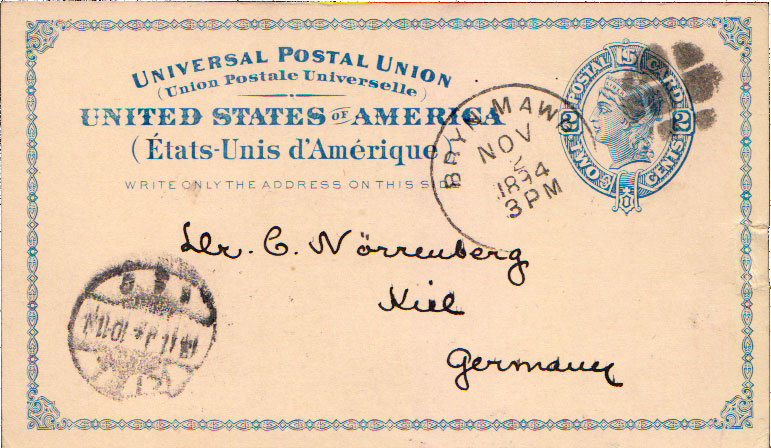 UNIVERSAL POSTAL UNION
(Union Postale Universelle)
UNITED STATES OF AMERICA
(États-Unis d'Amérique)
WRITE ONLY THE ADDRESS ON THIS SIDE
U.S. POSTAL CARD
2 2
TWO CENTS
BRYN MAWR
NOV
5
1894
3 PM
Dr. C. Nörrenberg
Kiel
Germany